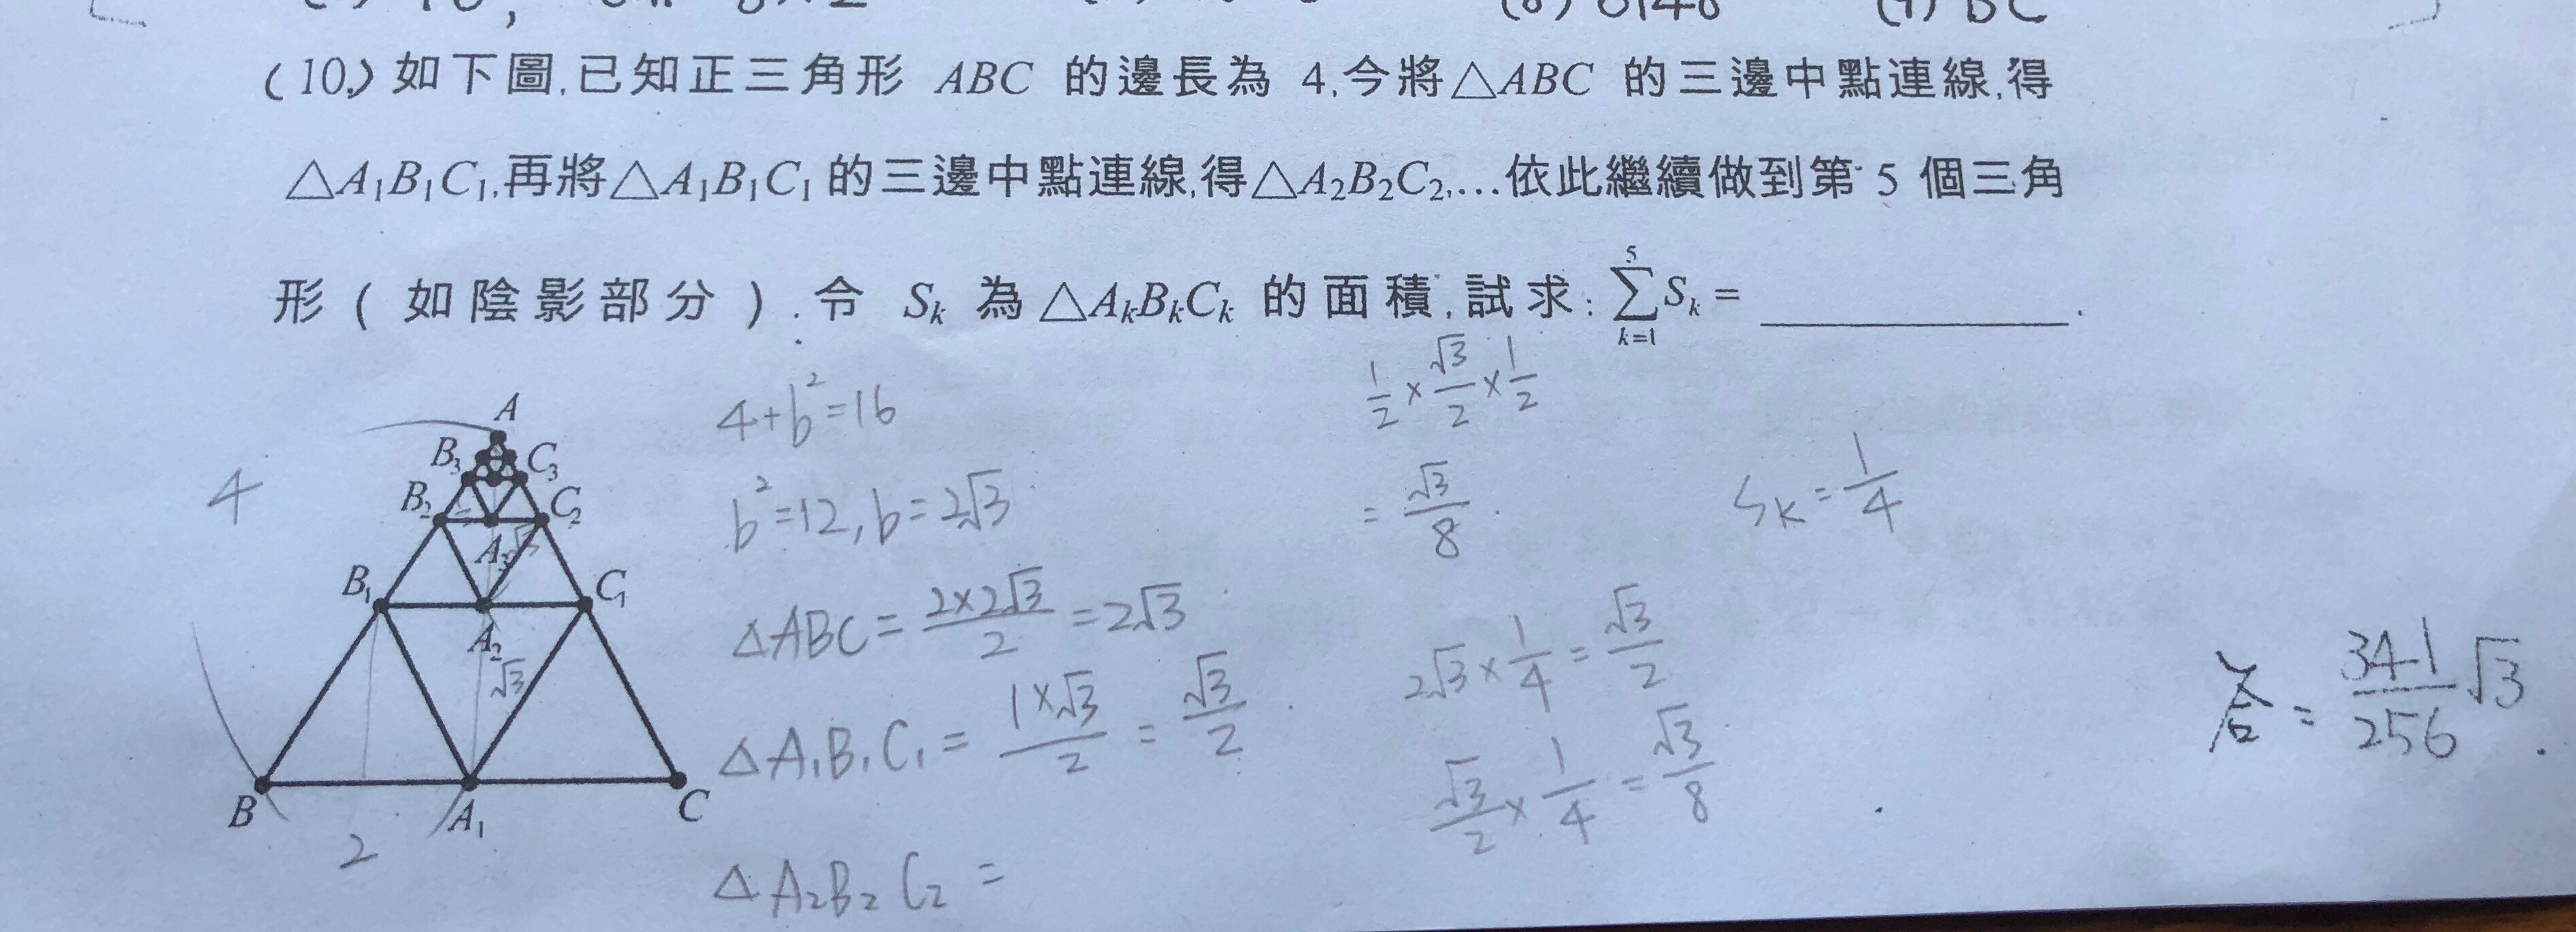 (8) 6140 (9) BC
(10.) 如下圖,已知正三角形 ABC 的邊長為 4,今將△ABC 的三邊中點連線,得
△A₁B₁C₁,再將△A₁B₁C₁的三邊中點連線,得△A₂B₂C₂,…依此繼續做到第 5 個三角
形(如陰影部分).令 Sₖ 為△AₖBₖCₖ 的面積,試求: ∑ₖ₌₁⁵ Sₖ = ________.
A
B₃ C₃
B₂ C₂
A₃
B₁ C₁
A₂
√3
B A₁ C
4
2
4+b²=16
b²=12, b=2√3
△ABC = (2×2√3)/2 = 2√3
△A₁B₁C₁ = (1×√3)/2 = √3/2
△A₂B₂C₂ =
1/2 × √3/2 × 1/2
= √3/8
2√3 × 1/4 = √3/2
√3/2 × 1/4 = √3/8
Sₖ = 1/4
答 = 341/256 √3.